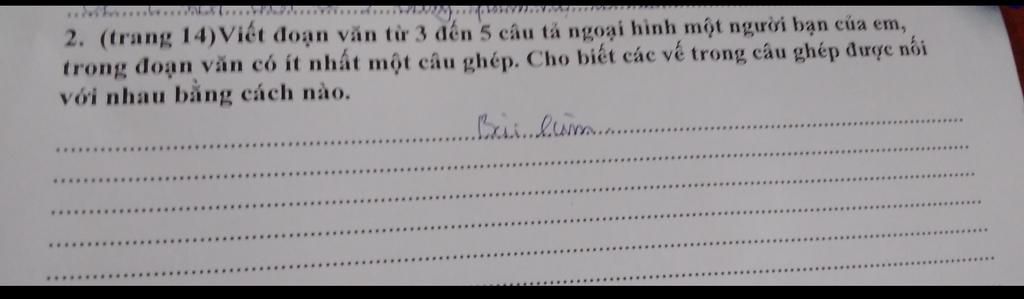 2. (trang 14)Viết đoạn văn từ 3 đến 5 câu tả ngoại hình một người bạn của em,
trong đoạn văn có ít nhất một câu ghép. Cho biết các vế trong câu ghép được nối
với nhau bằng cách nào.
Bài làm